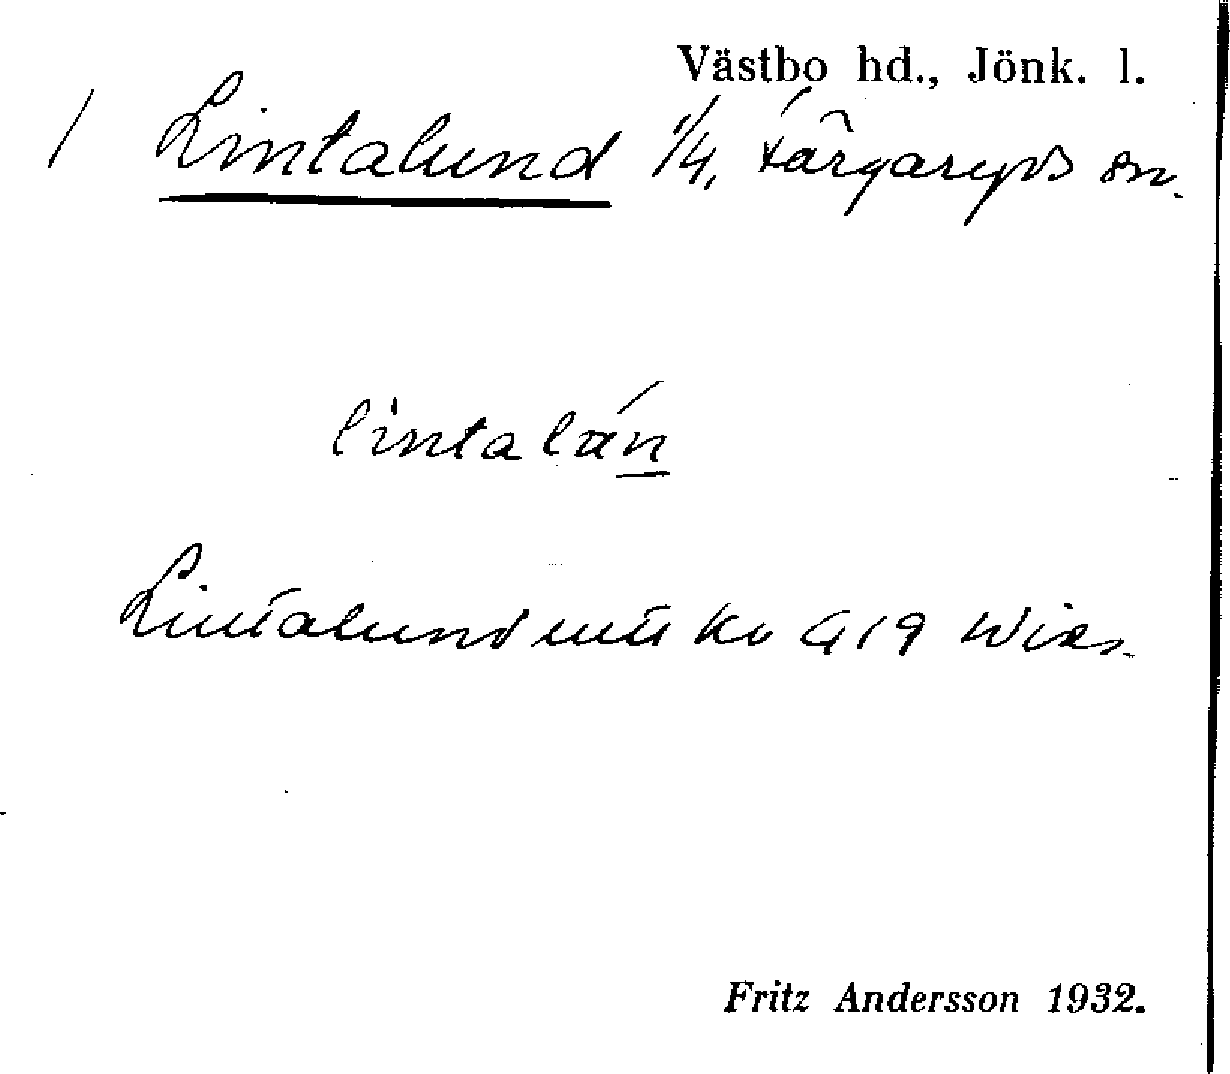 Västbo hd., Jönk. l.
/ Lintalund 1/4, Färgaryds sn.
lintalán
Lintalund utii kv 419 Wies.
Fritz Andersson 1932.